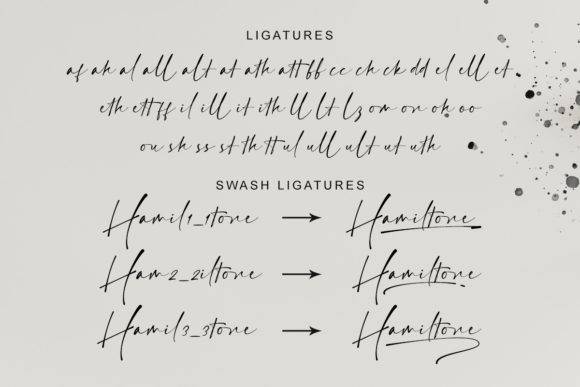 LIGATURES
af ah al all alt at ath att ff cc ch ck dd el ell et
eth ett ff il ill it ith ll lt lz om on ok oo
ou sh ss st th tt ul ull ult ut uth
SWASH LIGATURES
Hamil1_1tone → Hamiltone
Ham2_2iltone → Hamiltone
Hamil3_3tone → Hamiltone